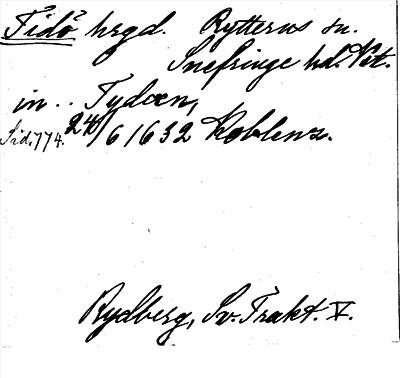 Tidö hrgd. Rytterns sn.
Snefringe hd. Vst.
in .. Tydoen,
Sid. 774. 24/6 1632 Koblenz.
Rydberg, Sv. Trakt. V.